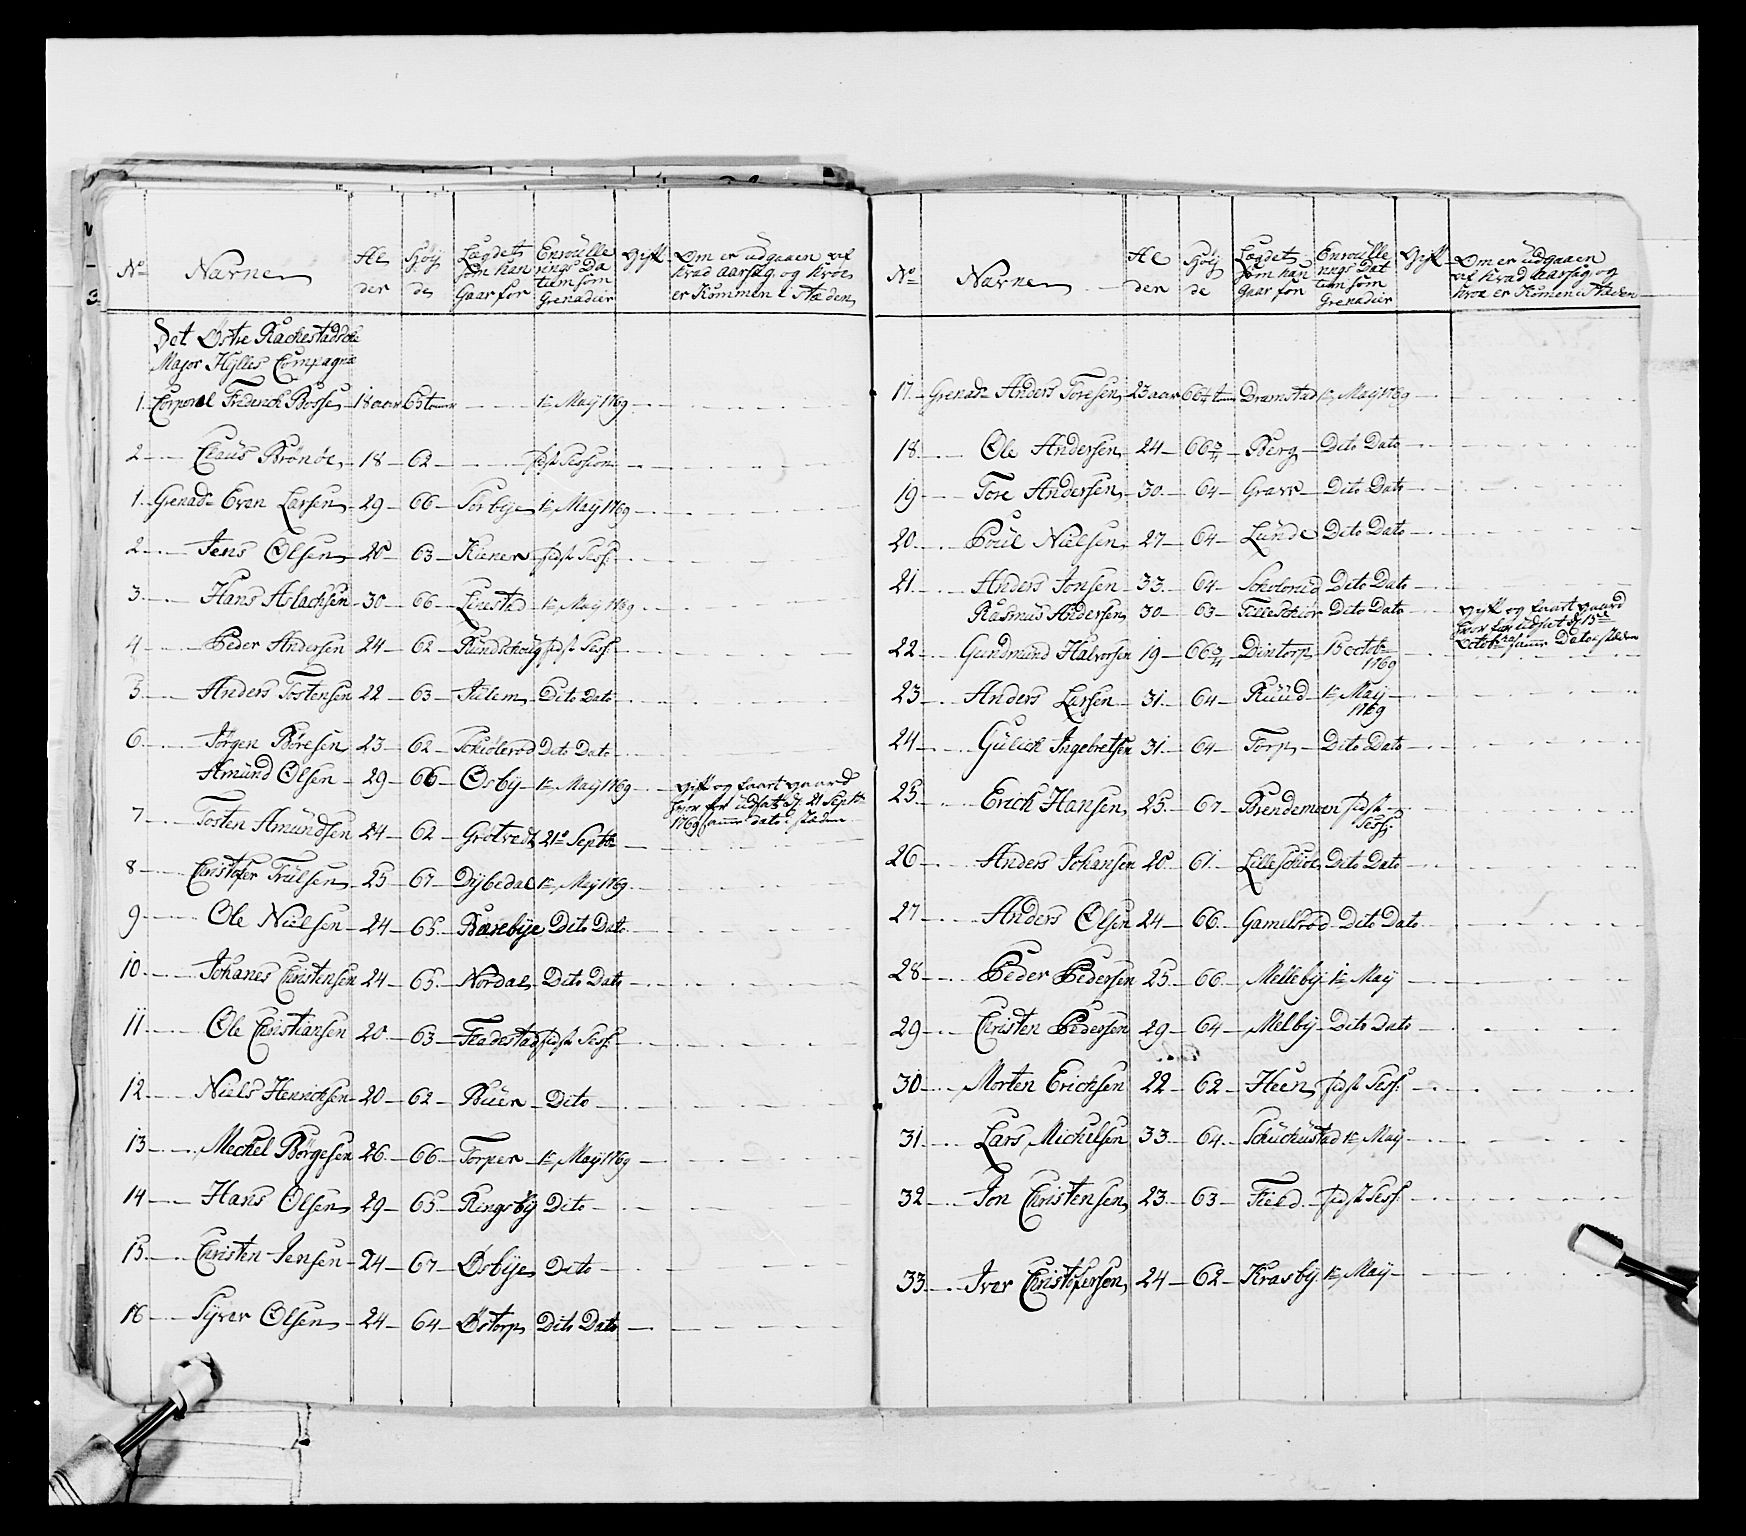 No Navne Al der Høÿ de Lægdets som han Gaar for Enroulle rings Da tum som Grenadeir Gift Om er udgaaen af hvad aarsag og hvor er Kommen i Stæden
Det Østre Rackestadske
Major Hÿlles Compagnie
1 Corporal Frederich Bosse 18 aar 65 tomr 1te Maÿ 1769
2 Claus Brönöe 18 62 sidst Session
1 Grenadr Even Larsen 29 66 Sörbÿe 1te Maÿ 1769
2 Jens Olsen 20 63 Kiener sidst Sess:
3 Hans Aslachsen 30 66 Linestad 1te Maÿ 1769
4 Peder Andersen 24 62 Rundschoug sidst Sess:
5 Anders Tostensen 22 63 Julem Dito Dato
6 Jörgen Böresen 23 62 Schiölerod Dito Dato
Amund Olsen 29 66 Osbÿ 1te Maÿ 1769 gift og faart gaard
hvor for udsat d 21 Septbr
7 Tosten Amundsen 24 62 Grotvedt 21de Septbr 1769 samme dato i stæden
8 Christofer Trulsen 25 67 Dÿbedal 1te Maÿ 1769
9 Ole Nielsen 24 65 Rarebÿe Dito Dato
10 Johanes Christensen 24 65 Nordal Dito Dato
11 Ole Christiansen 20 63 Fladestad sidst Sess:
12 Niels Henrichsen 20 62 Buer Dito
13 Mechel Börgesen 26 66 Torper 1te Maÿ 1769
14 Hans Olsen 29 65 Ringsbÿ Dito
15 Christen Jensen 24 67 Osbÿe Dito
16 Sÿver Olsen 24 64 Östorp Dito Dato
No Navne Al der Høÿ de Lægdets som han gaar for Enroulle rings Dat tum som Grenadeir Gift Om er udgaaen af hvad aarsag og hvor er Komen i Stæden
17 Grenadr Anders Toresen 23 aar 66 1/4 t Dramstad 1te Maÿ 1769
18 Ole Andersen 24 66 3/4 Berg Dito Dato
19 Tore Andersen 30 64 Grav Dito Dato
20 Poul Nielsen 27 64 Lunde Dito Dato
21 Anders Jonsen 33 64 Dito Dato
Rasmus Andersen 30 63 Dito Dato gift og faart gaard
hvor for udsat d 15de
22 Gundmund Halvorsen 19 66 3/4 Dintorp 15 octobr 1769 Octobr samme Dato i stæden
23 Anders Larsen 31 64 Ruud 1te Maÿ 1769
24 Gulich Ingebretsen 31 64 Torp Dito Dato
25 Erich Hansen 25 67 Brendemoen sidst Sess:
26 Anders Johansen 20 61 Lilleschou Dito Dato
27 Anders Olsen 24 66 Gamelsrod Dito Dato
28 Peder Pedersen 25 66 Mellebÿ 1te Maÿ
29 Christen Pedersen 29 64 Melbÿ Dito Dato
30 Morten Erichsen 22 62 Heen sidst Sess:
31 Lars Michelsen 33 64 Schuckustad 1te Maÿ
32 Jon Christensen 23 63 Field sidst Sess:
33 Iver Christofersen 24 62 Krasbÿ 1te Maÿ